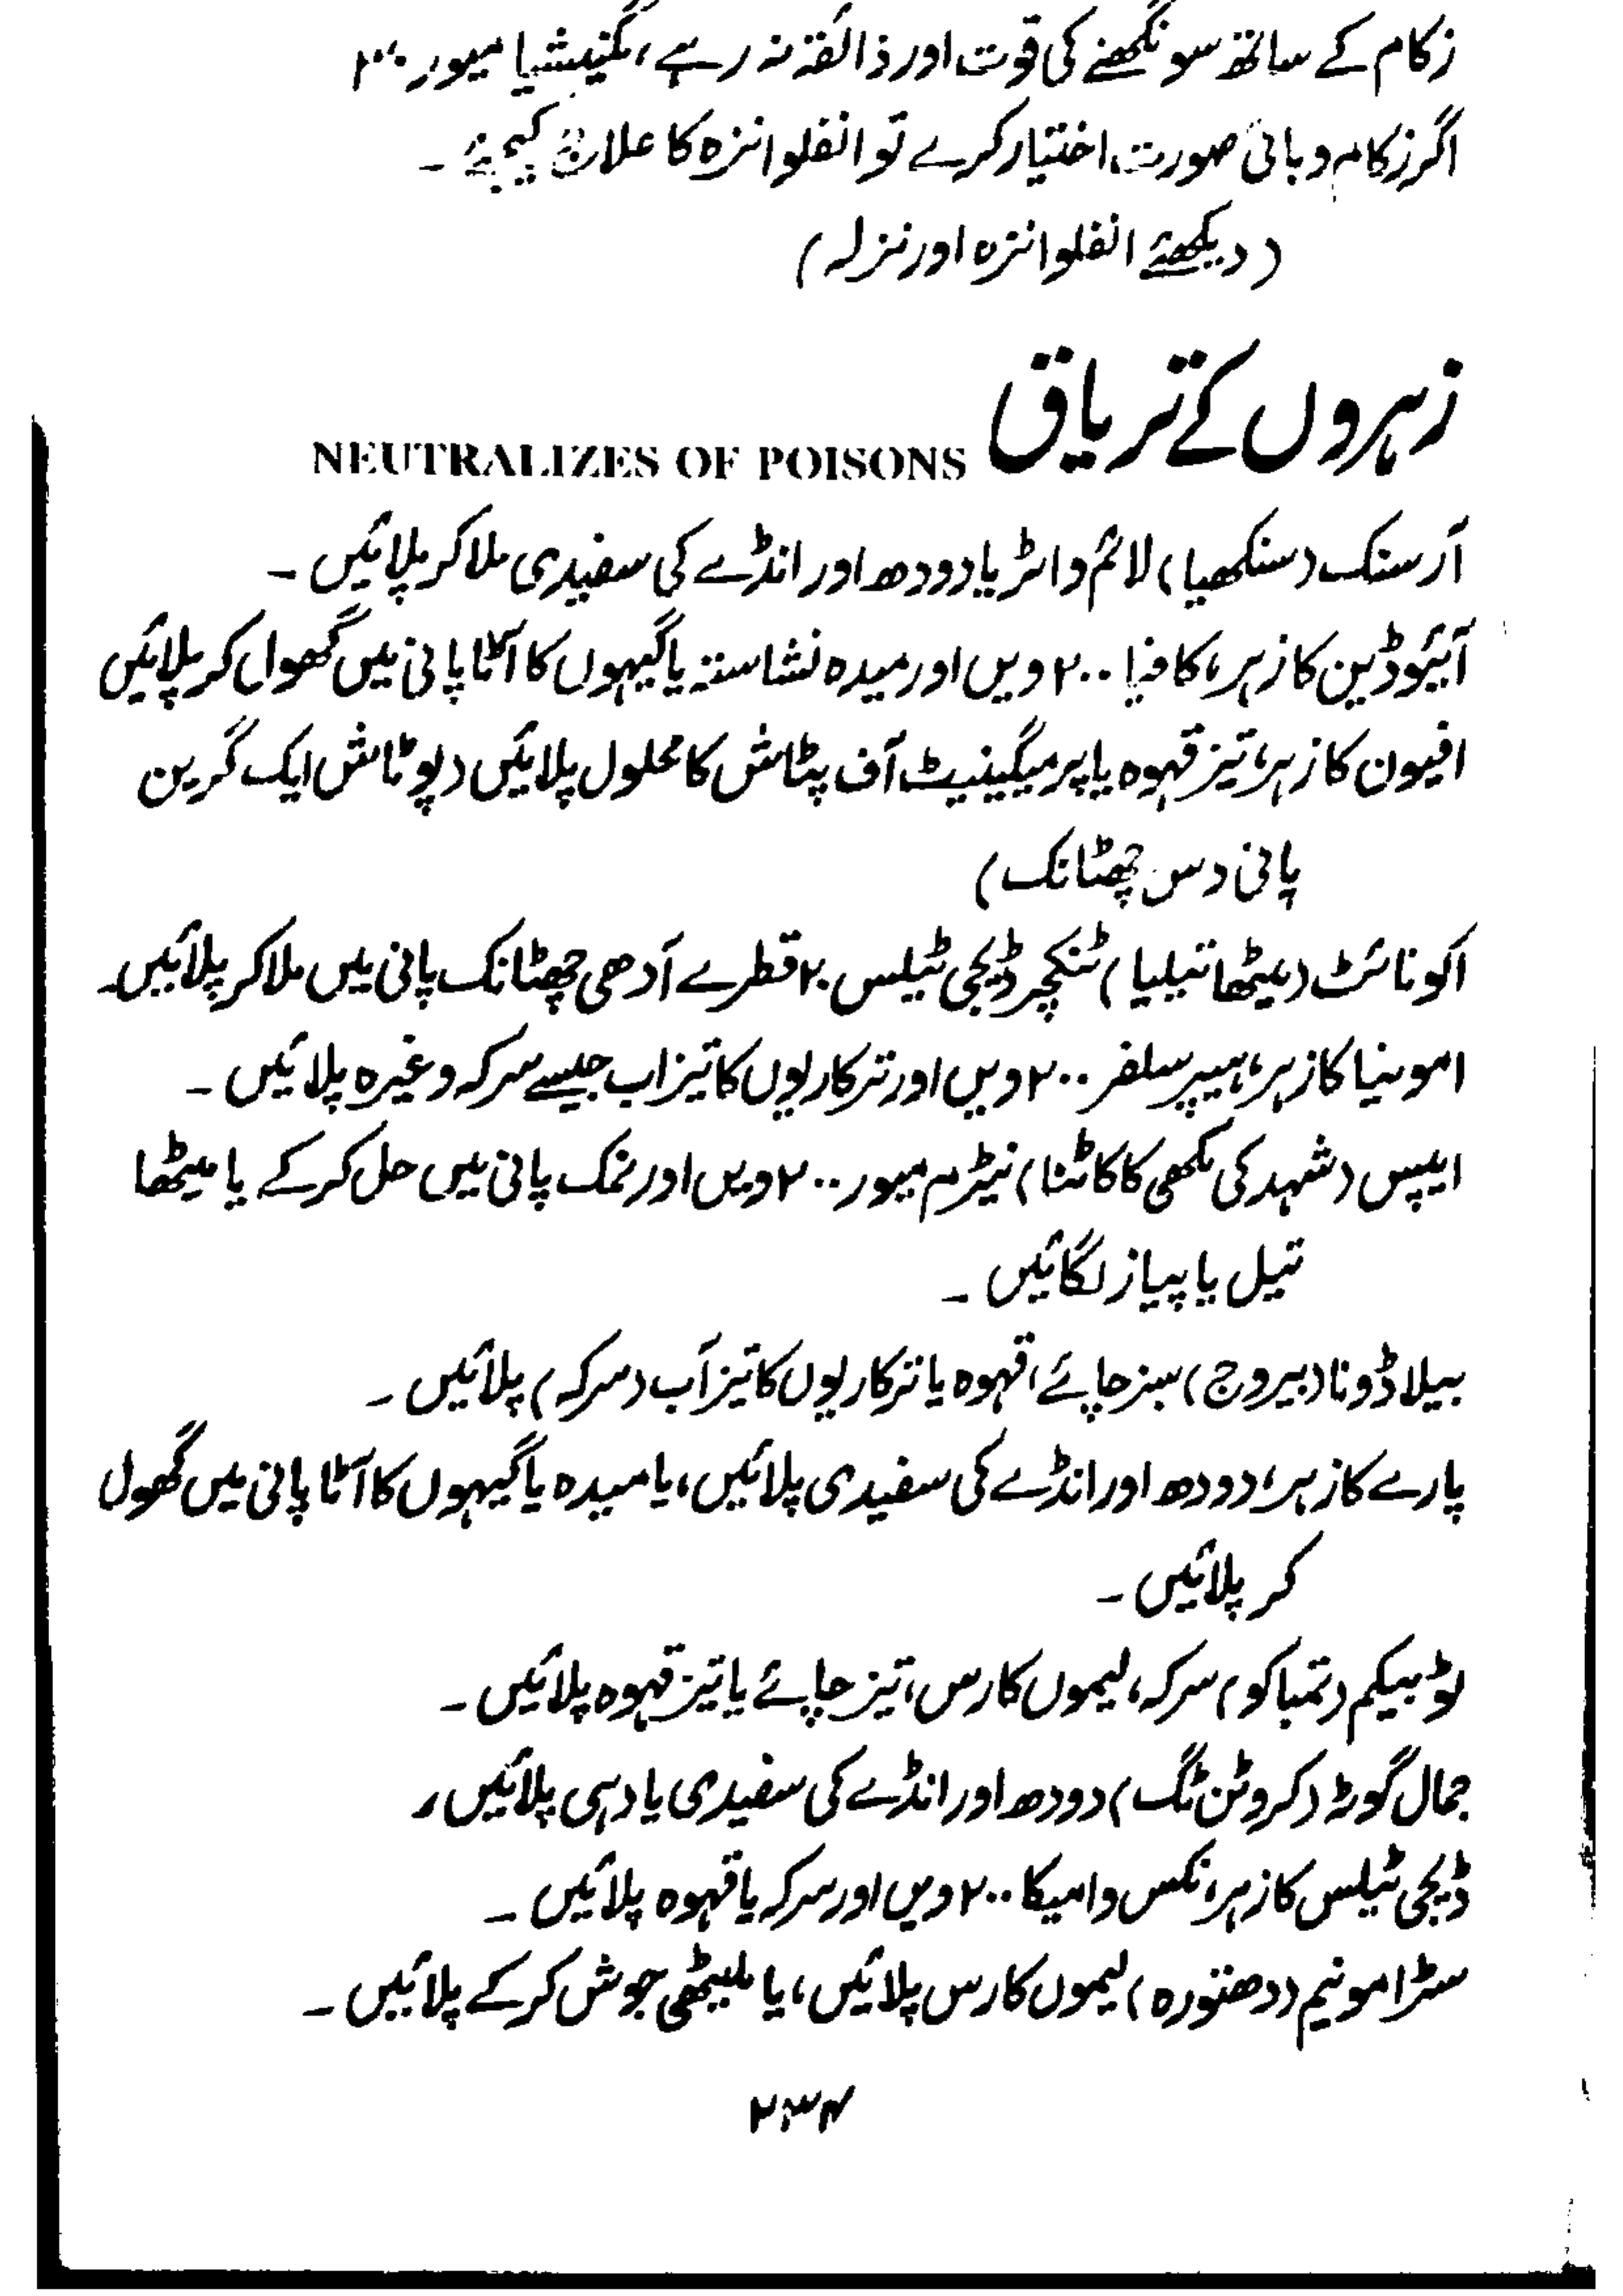 زکام کے ساتھ سونگھنے کی قوت اور ذائقہ نہ رہے، مگنیشیا میور ۳۰
اگر زکام وبائی صورت اختیار کرے تو انفلوانزہ کا علاج کیجئے۔
(دیکھئے انفلوانزہ اور نزلہ)
زہروں کے تریاق NEUTRALIZES OF POISONS
آرسنک (سنکھیا) لائم واٹر یا دودھ اور انڈے کی سفیدی ملا کر پلائیں۔
آئیوڈین کا زہر، کافیا ۲۰۰ ویں اور میدہ نشاستہ یا گیہوں کا آٹا پانی میں گھول کر پلائیں
افیون کا زہر، تیز قہوہ یا پرمیگینیٹ آف پٹاش کا محلول پلائیں (پوٹاش ایک گرین
پانی دس چھٹانک)
اکونائٹ (میٹھا تیلیا) ٹنکچر ڈیجی ٹیلس ۲۰ قطرے آدھی چھٹانک پانی میں ملا کر پلائیں۔
امونیا کا زہر، ہیپر سلفر ۲۰۰ ویں اور ترکاریوں کا تیزاب جیسے سرکہ وغیرہ پلائیں۔
ایپس (شہد کی مکھی کا کاٹنا) نیٹرم میور ۲۰۰ ویں اور نمک پانی میں حل کر کے یا میٹھا
تیل یا پیاز لگائیں۔
بیلا ڈونا (بیروج) سبز چائے، قہوہ یا ترکاریوں کا تیزآب (سرکہ) پلائیں۔
پارے کا زہر، دودھ اور انڈے کی سفیدی پلائیں، یا میدہ یا گیہوں کا آٹا پانی میں گھول
کر پلائیں۔
ٹوبیکم (تمباکو) سرکہ، لیموں کا رس، تیز چائے یا تیز قہوہ پلائیں۔
جمال گوٹہ (کروٹن ٹگ) دودھ اور انڈے کی سفیدی یا دہی پلائیں،
ڈیجی ٹیلس کا زہر، نکس وامیکا ۲۰۰ ویں اور سرکہ یا قہوہ پلائیں۔
سٹرامونیم (دھتورہ) لیموں کا رس پلائیں، یا ملیٹھی جوش کر کے پلائیں۔
۲۳۶